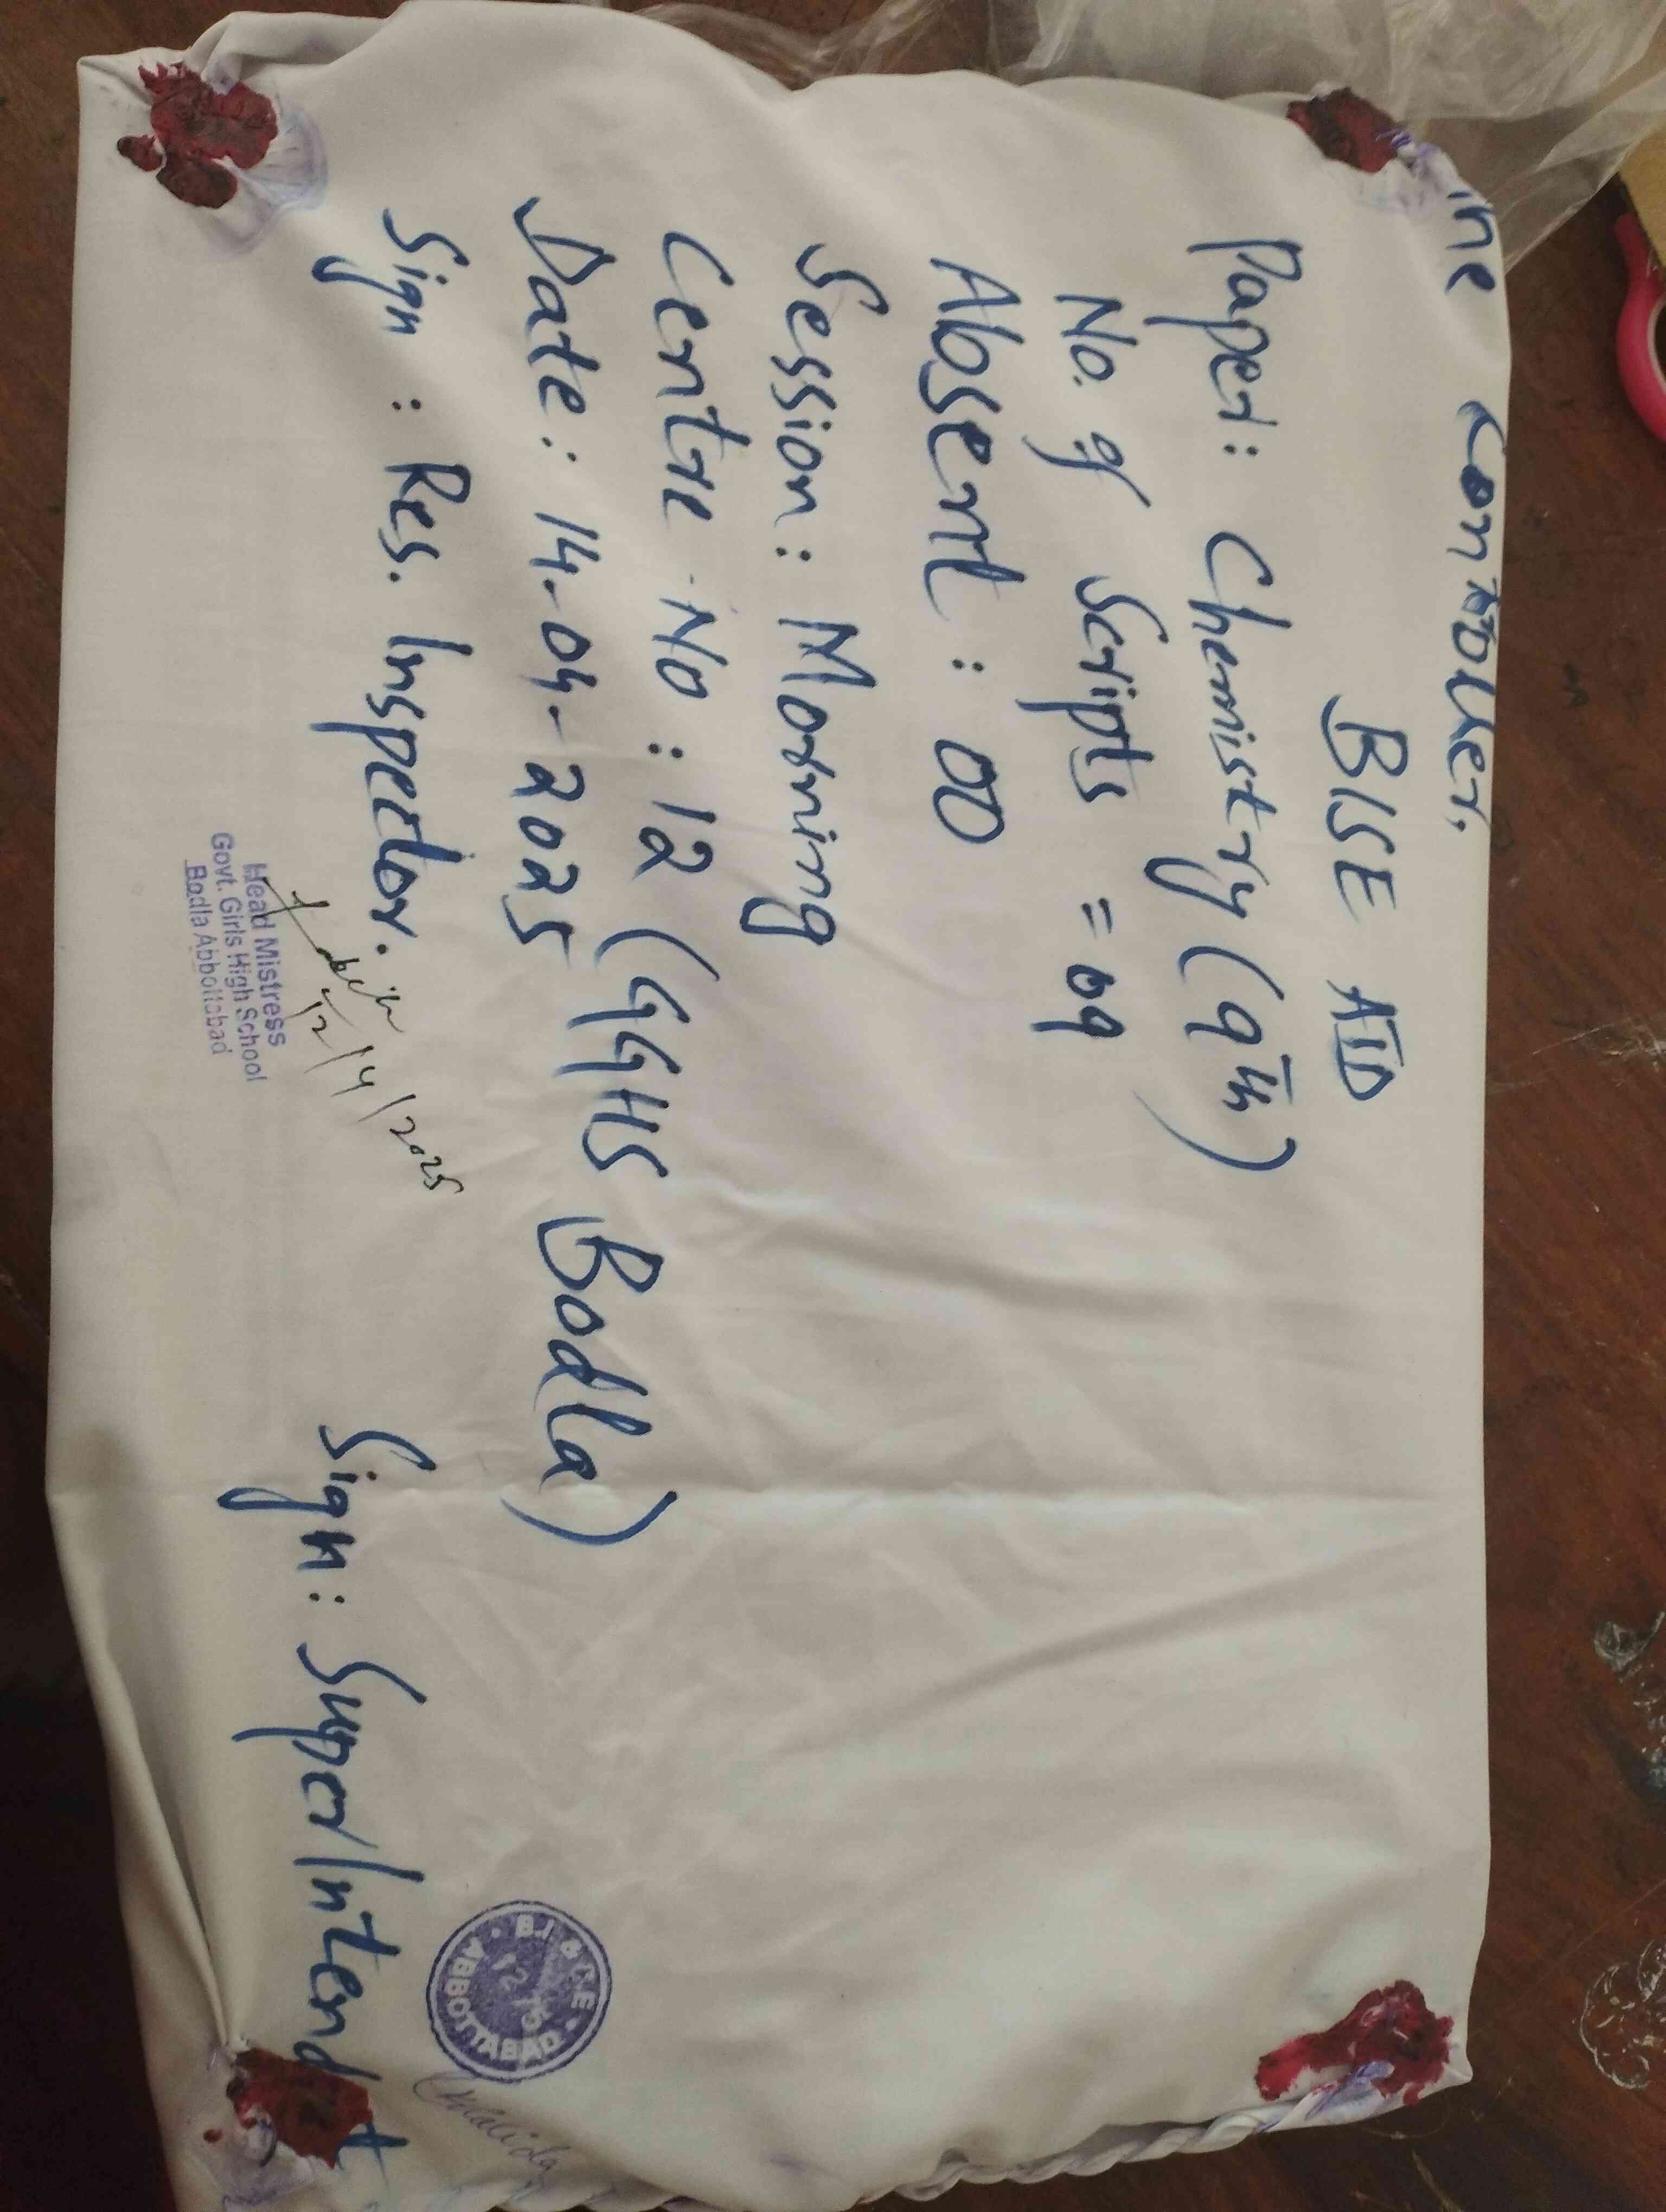 The Controller,
BISE ATD
Paper: Chemistry (9th)
No. of Scripts = 09
Absent : 00
Session : Morning
Centre No : 12 (GGHS Bodla)
Date : 14-04-2025
Sign : Res. Inspector.
Sign : Super/Intend t
/4/2025
Head Mistress
Govt. Girls High School
Bodla Abbottabad
B.I & S.E
ABBOTTABAD